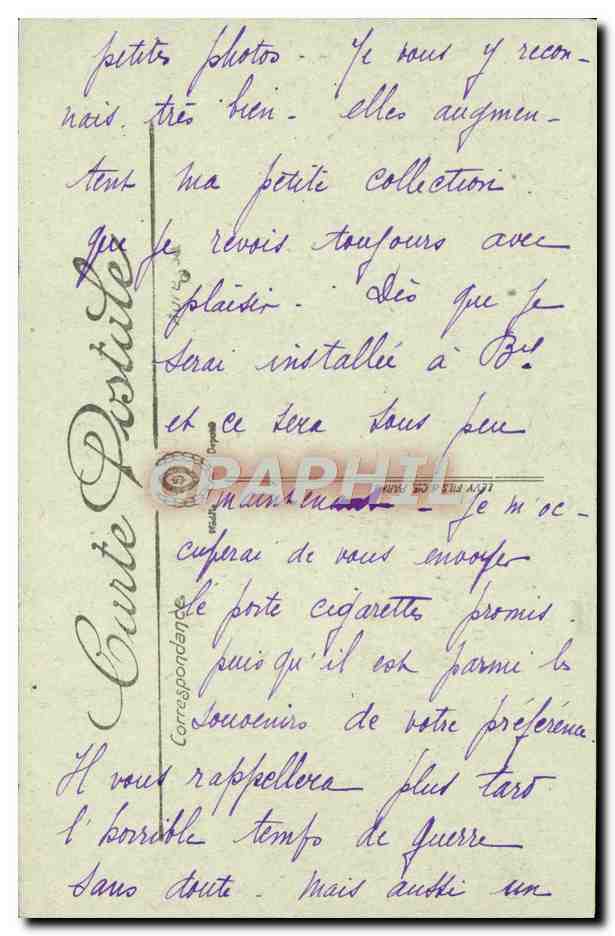 petites photos. Je vous y recon-
nais très bien - elles augmen-
tent ma petite collection
que je revois toujours avec
plaisir. Dès que je
serai installée à Bel
et ce sera sous peu
maintenant - Je m'oc-
cuperai de vous envoyer
le porte cigarettes promis
puisqu'il est parmi les
souvenirs de votre préférence.
Il vous rappellera plus tard
l'horrible temps de guerre
sans doute - mais aussi un
Carte Postale
Correspondance
Modèle Déposé
LEVY FILS & CIE, PARIS
DELCAMPE